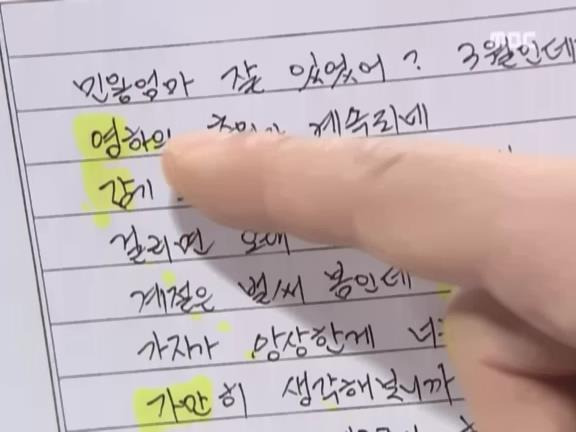 MBC
민웅엄마 잘 있었어? 3월인데
영하의 계속되네
감기
걸리면
계절은 벌써 봄인데
가지가 앙상한게
가만히 생각해보니까